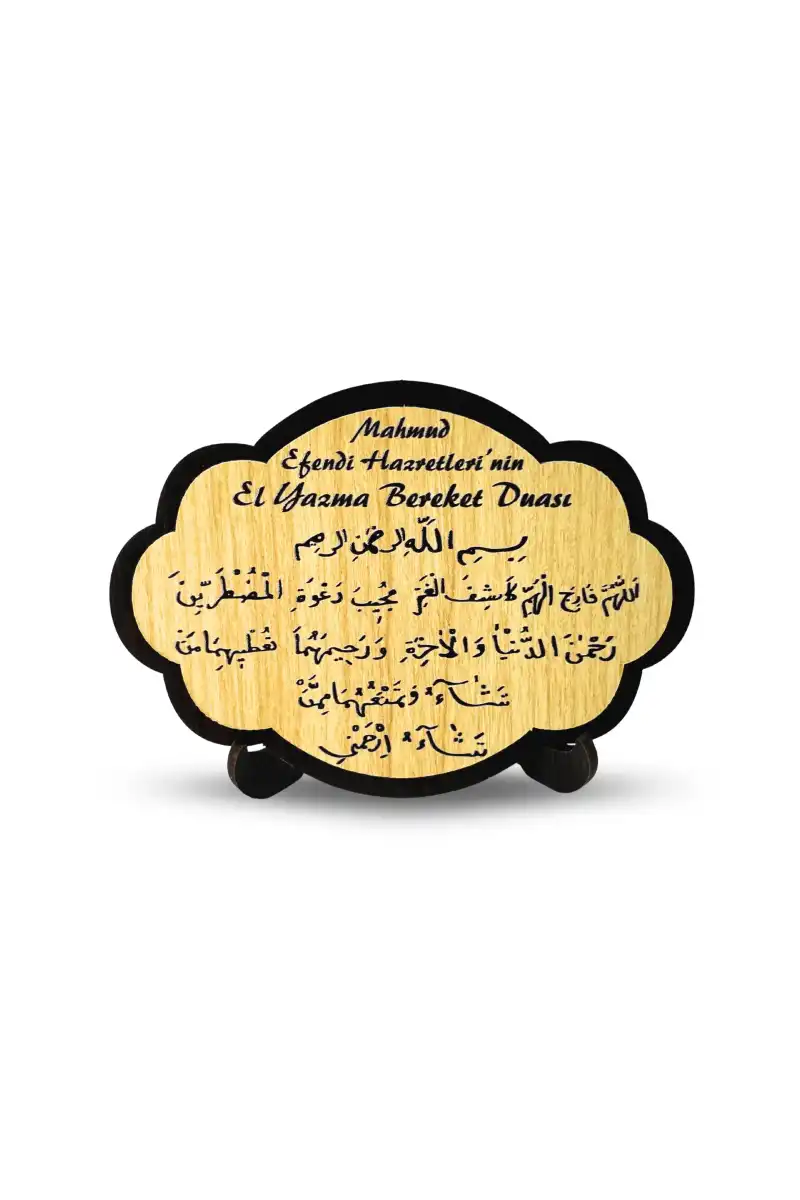 Mahmud
Efendi Hazretleri'nin
El Yazma Bereket Duası
بِسْمِ اللَّهِ الرَّحْمٰنِ الرَّحِيمِ
اَللّٰهُمَّ فَارِجَ الْهَمِّ كَاشِفَ الْغَمِّ مُجِيبَ دَعْوَةِ الْمُضْطَرِّينَ
رَحْمٰنَ الدُّنْيَا وَالْاٰخِرَةِ وَرَحِيمَهُمَا تُعْطِيهِمَا مَنْ
تَشَآءُ وَتَمْنَعُهُمَا مِمَّنْ
تَشَآءُ اِرْحَمْنِي